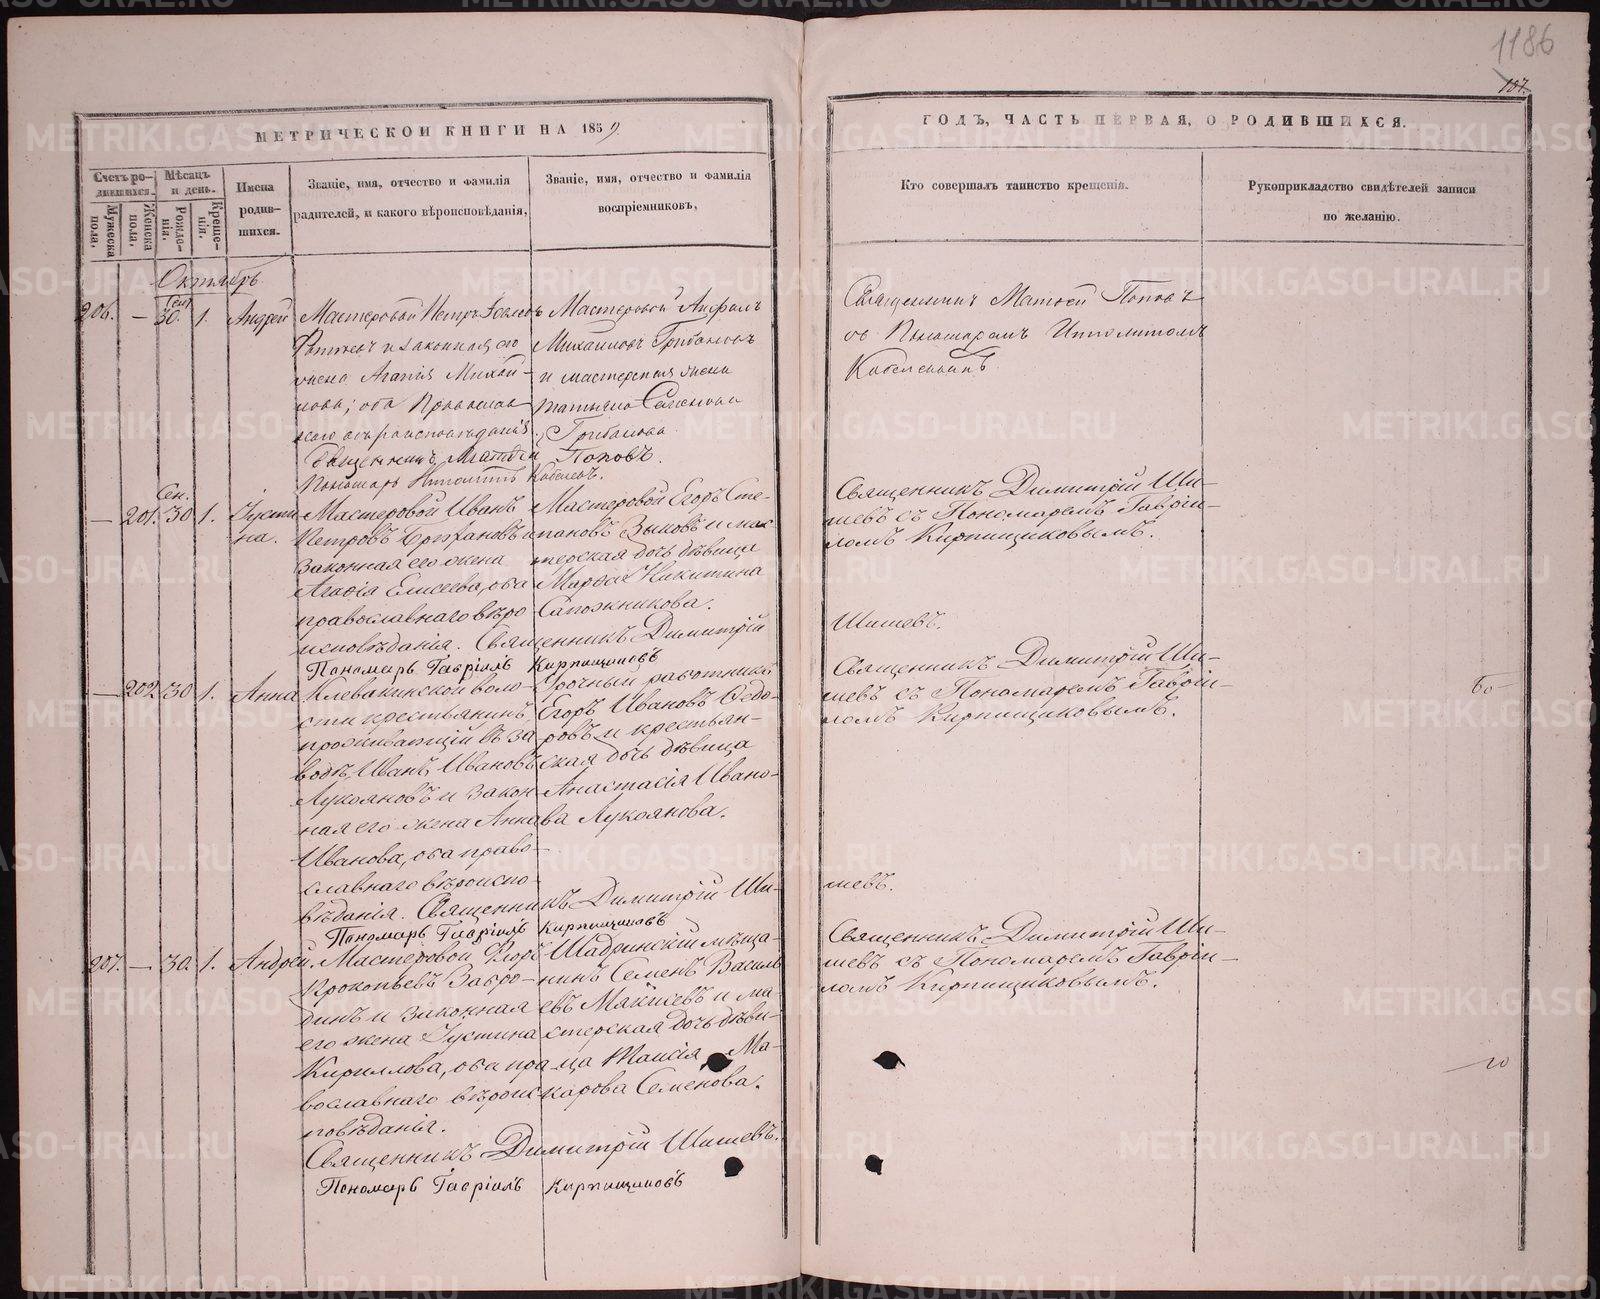 1186
107.
МЕТРИЧЕСКОЙ КНИГИ НА 1859
ГОДЪ, ЧАСТЬ ПЕРВАЯ, О РОДИВШИХСЯ.
Счетъ ро-
дившихся.
Мужеска пола.
Женска пола.
Мѣсяцъ
и день.
Рожде-
нія.
Креще-
нія.
Имена
родив-
шихся.
Званіе, имя, отчество и фамилія
радителей, и какого вѣроисповѣданія,
Званіе, имя, отчество и фамилія
воспріемниковъ,
Кто совершалъ таинство крещенія.
Рукоприкладство свидѣтелей записи
по желанію.
Октябрь
206. — Сен. 30. 1. Андрей
Мастеровой Петръ
и законная его
жена Агапія Михай-
лова; оба Православ
наго вѣроисповѣданія.
Мастеровой
Михайловъ Грибановъ
и мастерская жена
Татьяна Семенова
Грибанова
Священникъ Матѳей Поповъ.
Пономарь Ипполитъ Кобелевъ.
Священникъ Матѳей Поповъ
съ Пономаремъ Ипполитомъ
— 201. Сен. 30 1. Іусти
на.
Мастеровой Иванъ
Петровъ
законная его жена
Агафія Елисеева, оба
православнаго вѣро
исповѣданія. Священникъ Димитрій
Мастеровой Егоръ Сте-
пановъ Зыковъ и мас
терская дочь дѣвица
Марѳа Никитина
Сапожникова.
Пономарь Гавріилъ Кирпищиковъ
Священникъ Димитрій Ши-
шевъ съ Пономаремъ Гаврі-
иломъ Кирпищиковымъ.
Шишевъ.
— 202. 30 1. Анна
Клевакинской воло-
сти крестьянинъ,
проживающій въ за
водѣ, Иванъ Ивановъ
Лукояновъ и закон-
ная его жена Анна
Иванова, оба право-
славнаго вѣроиспо-
вѣданія. Священникъ Димитрій Ши-
Урочный работникъ
Егоръ Ивановъ Ѳедо-
ровъ и крестьян-
ская дочь дѣвица
Анастасія Ивано-
ва Лукоянова.
Пономарь Гавріилъ Кирпищиковъ
Священникъ Димитрій Ши-
шевъ съ Пономаремъ Гаврі-
иломъ Кирпищиковымъ.
шевъ.
207. — 30. 1. Андрей.
Мастеровой Егоръ
Прокопьевъ Завро-
динъ и законная
его жена Іустина
Кириллова, оба пра
вославнаго вѣроис
повѣданія.
Шадринскій мѣща-
нинъ Семенъ Василь
евъ и ма-
стерская дочь дѣви-
ца Таисія Ма-
карова Семенова.
Священникъ Димитрій Шишевъ.
Пономарь Гавріилъ Кирпищиковъ
Священникъ Димитрій Ши-
шевъ съ Пономаремъ Гаврі-
иломъ Кирпищиковымъ.
METRIKI.GASO-URAL.RU